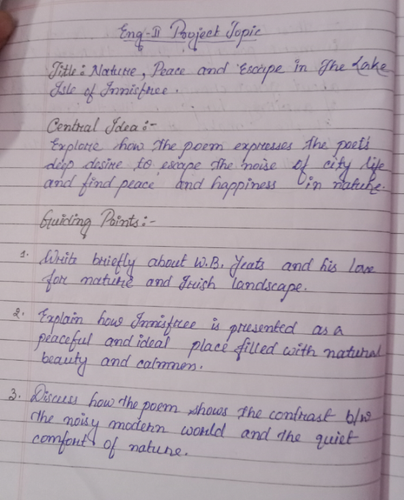 Eng-II Project Topic
Title: Nature, Peace and Escape in The Lake
Isle of Innisfree.
Central Idea:-
Explore how the poem expresses the poet's
deep desire to escape the noise of city life
and find peace and happiness in nature.
Guiding Points:-
1. Write briefly about W.B. Yeats and his love
for nature and Irish landscape.
2. Explain how Innisfree is presented as a
peaceful and ideal place filled with natural
beauty and calmnen.
3. Discuss how the poem shows the contrast b/w
the noisy modern world and the quiet
comfort of nature.